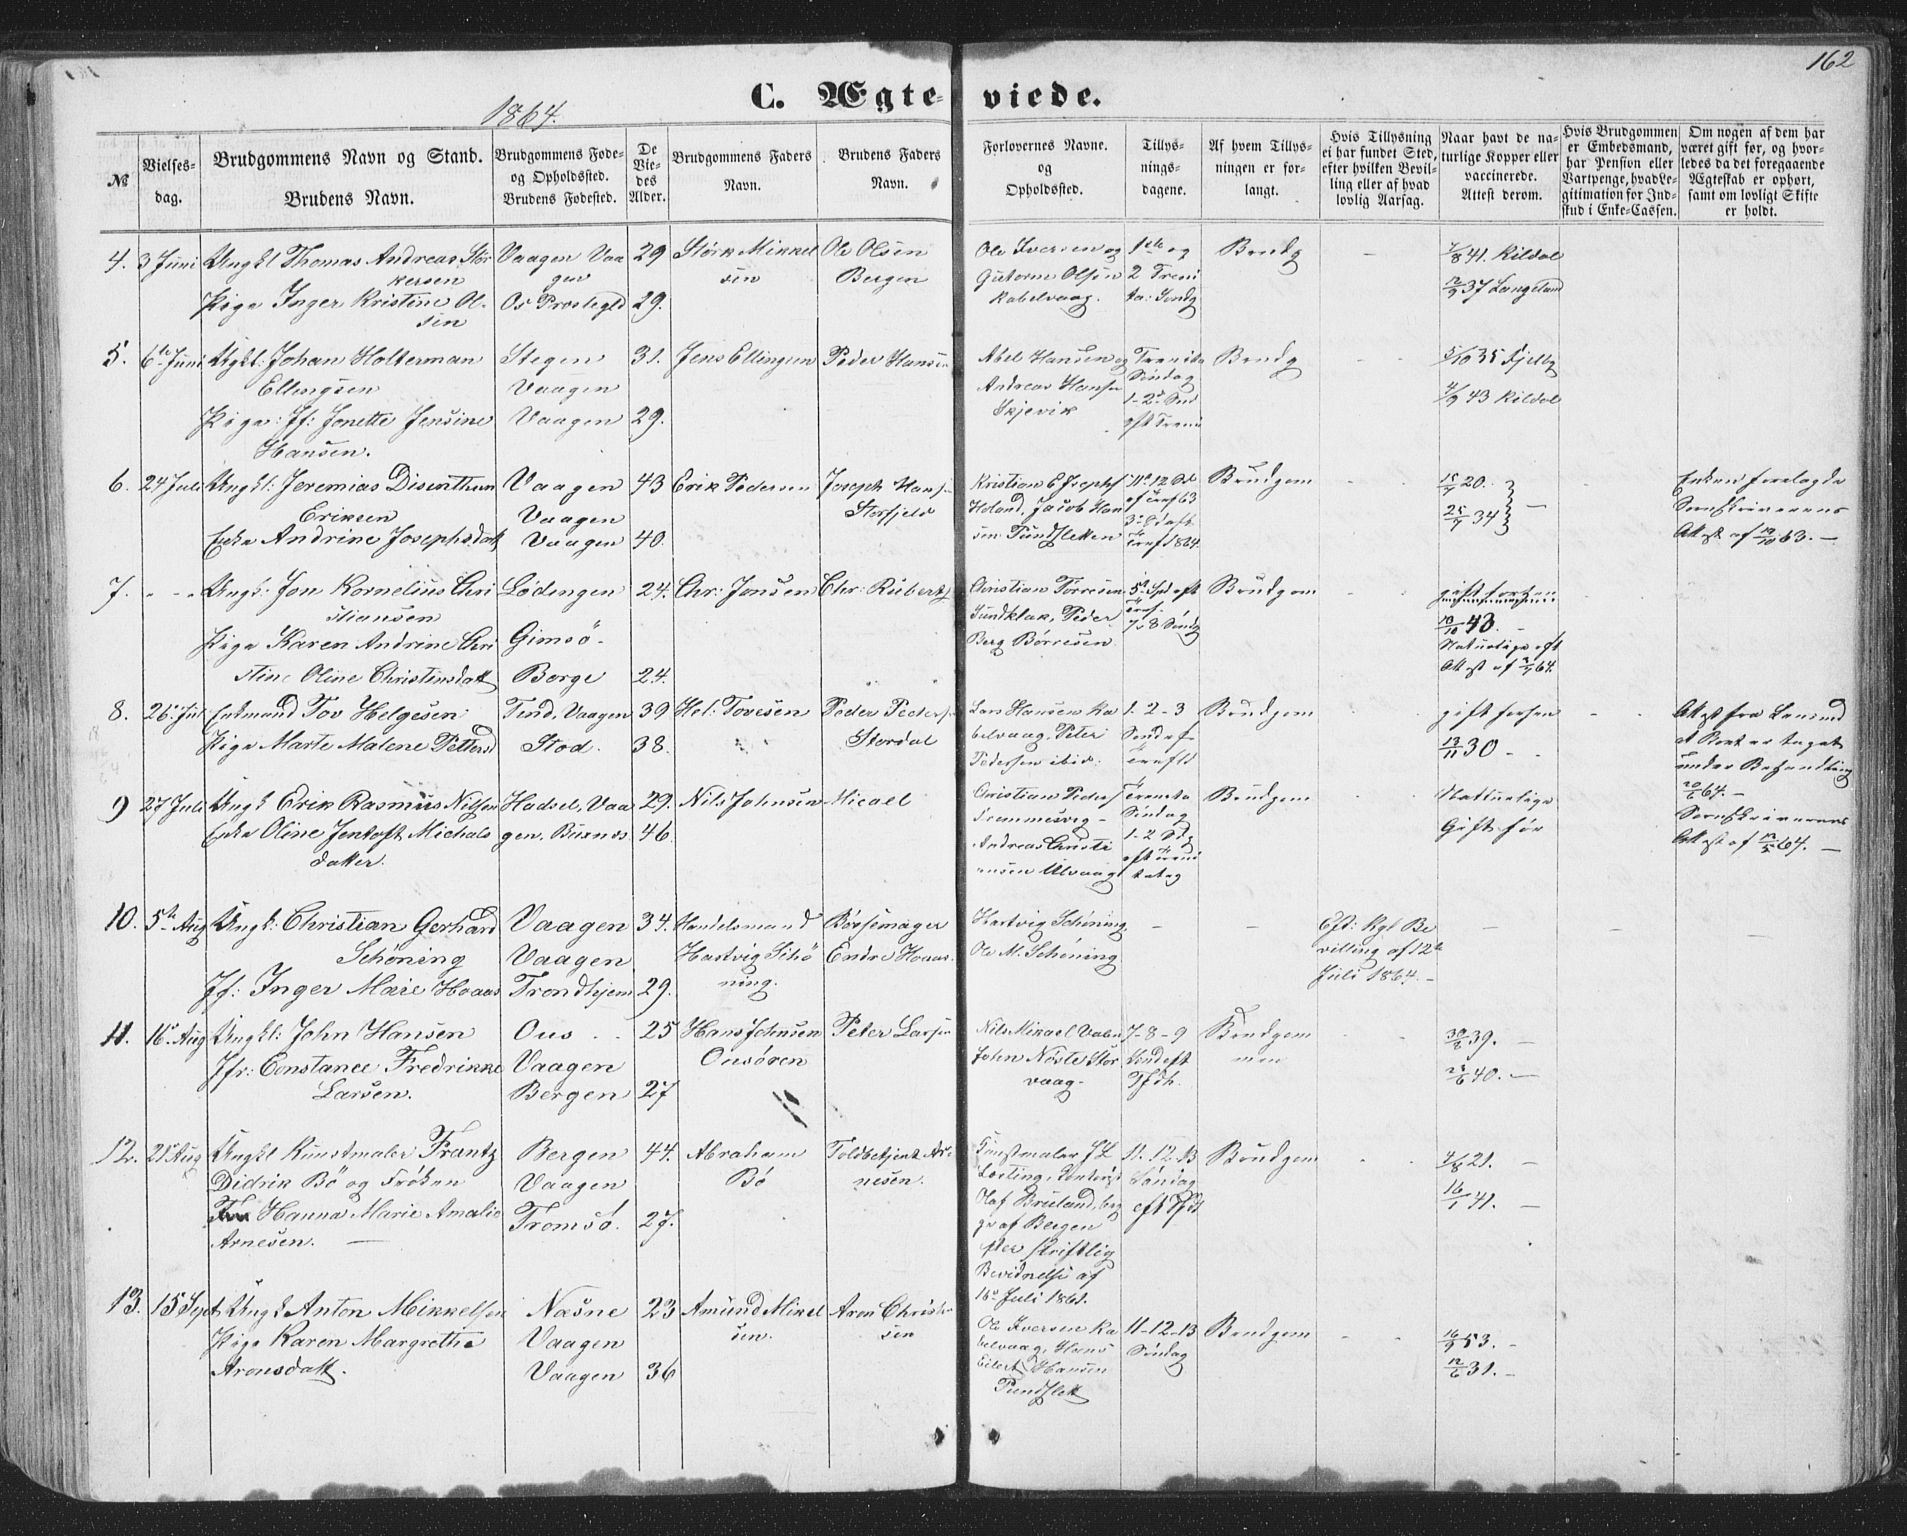 162
1864.
C. Ægteviede.
No
Vielses-
dag.
Brudgommens Navn og Stand.
Brudens Navn.
Brudgommens Føde-
og Opholdssted.
Brudens Fødested.
De
Vie-
des
Alder.
Brudgommens Faders
Navn.
Brudens Faders
Navn.
Forlovernes Navne.
og
Opholdssted.
Tillys-
nings-
dagene.
Af hvem Tillys-
ningen er for-
langt.
Hvis Tillysning
ei har fundet Sted,
efter hvilken Bevil-
ling eller af hvad
lovlig Aarsag.
Naar havt de na-
turlige Kopper eller
vaccinerede.
Attest derom.
Hvis Brudgommen
er Embedsmand,
har Pension eller
Vartpenge, hvad Le-
gitimation for Ind-
skud i Enke-Cassen.
Om nogen af dem har
været gift før, og hvor-
ledes da det foregaaende
Ægteskab er ophørt,
samt om lovligt Skifte
er holdt.
4. 3 Juni
Ungkl Thomas Andreas Stör
kersen
Pige Inger Kristine Ol-
sen
Vaagen Vaa
gen
Os Prostegld
29
29.
Störk Mikkel
sen
Ole Olsen
Bergen
Ole Iversen og
Gutorm Olsen
Kabelvaag.
1ste og
2 Treni
ta: Sondg
Brudg
7/8 41 Kildal
12/9 37 Langeland
5. 6te Juni
Ungkl: Johan Holterman
Ellingsen
Pige: Jf: Jonette Jensine
Hansen.
Stegen
Vaagen
Vaagen
31.
29.
Jens Ellingsen
Peder Hansen
Abel Hansen og
Andreas Hansen
Skjevik
Trenita
Söndag
1-2 Snd
eft Treni
Brudg
5/10 35 Kjelby
4/9 43 Kildal
6. 24 Juli
Ungkl: Jeremias Disenthun
Eriksen
Enke Andrine Josephsdatt
Vaagen
Vaagen
Vaagen
43
40.
Erik Pedersen
Joseph Hans
Storfjeld
Kristian E Joseph
Holand, Jacob Han
sen Pundsletten
11te 12 Sd
af Tref 63
3 Sd eft
Tref 1864.
Brudgom
20.
34
Enken forelagde
Sorenskriverens
Attest af 12/10 63. —
7. " - "
Ungk: Jon Kornelius Chri
stiansen
Pige Karen Andrine Chri
stine Oline Christensdatt
Lödingen
Gimsö -
Borge
24.
24.
Chr: Jensen
Chr: Rubert
Christian Torresen
Sundklak, Peder
Berg Börresen
5te Spd eft
Tref.
7-8 Söndg
Brudgom
gift forhen
18/10 43.
Naturlige eft
Attest af 64.
8. 26 Juli
Enkemand Tov Helgesen
Pige Marte Malene Petters
Tind, Vaagen
Stod.
39
38.
Hel: Tovesen
Peder Peders
Stordal
Lars Hansen Ka
belvaag, Peter
Pedersen ibid:
1-2-3
Sönd ef
Trefts
Brudgom
gift forhen
13/11 30 -
Attest fra Lensmd
at Boet er taget
under Behandling
20/6 64. -
9 27 Juli
Ungk Erik Rasmus Nilsen
Enke Oline Jentoft Michals
datter.
Hadsel, Vaa
gen, Buxnæs
29.
46.
Nils Johnsen
Micael
Christian Peders
Fremmesvig -
Andreas Christi
ansen Ulvaag
Trenita
Söndag
1-2 Sdg
eft Treni
tatag
Brudgom
Natturlige
Gift för
Sorenskriverens
Attest af 12/5 64. —
10. 5te Aug
Ungk: Christian Gerhard
Schöning
Jf: Inger Marie Hoaas
Vaagen
Vaagen
Trondhjem
34.
29.
Handelsmand
Hartvig Schö
ning.
Börsemager
Endre Hoaas.
Hartvig Schöning
Ole M. Schöning
Eft: Kgl Be
villing af 12te
Juli 1864. -
11. 16 Aug
Ungkl: John Hansen
Jfr: Constance Fredrikke
Larsen.
Ous
Vaagen
Bergen
25
27
Hans Johnsen
Ousören
Peter Larsen
Nils Mikael
John Nöste Stor
vaag -
7-8-9
Sönd eft
Tfdh.
Brudgom
men
30/8 39. —
23/6 40. —
12. 21 Aug
Ungkl Kunstmaler Frantz
Didrik Bö og Fröken
Hanna Marie Amalie
Arnesen. —
Bergen
Vaagen
Tromsö.
44.
27.
Abraham
Bö
Toldbetjent Ar
nesen.
Kunstmaler J L
Losting, Kontorist
Olaf Bruland, beg
ge af Bergen
efter skriftlig
Bevidnelse af
16 Juli 1861.
11-12-13
Söndag
eft Tfdt
Brudgom
4/8 21. —
16/1 41. —
13. 15 Sept
Ungk Anton Mikkelsen
Pige Karen Margrethe
Aronsdatt.
Næsne
Vaagen
Vaagen
23
36
Amund Mikel
sen.
Aron Christen
sen
Ole Iversen Ka
belvaag, Hans
Eilert Hansen
Pundslett
11-12-13
Söndag
Brudgom
16/9 53. -
12/6 31. -